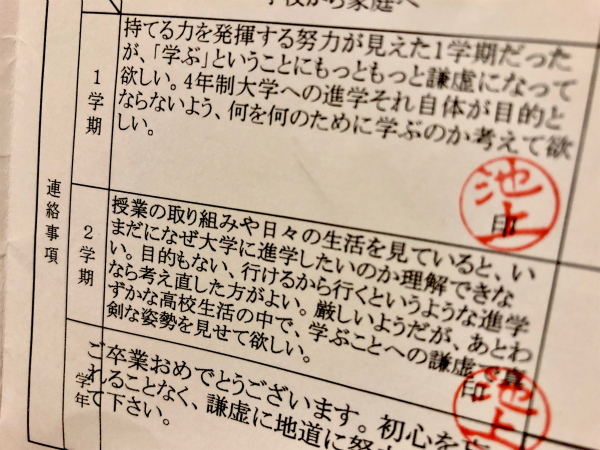 学校から家庭へ
連絡事項
1学期
持てる力を発揮する努力が見えた1学期だった
が、「学ぶ」ということにもっともっと謙虚になって
欲しい。4年制大学への進学それ自体が目的と
ならないよう、何を何のために学ぶのか考えて欲
しい。
池上
印
2学期
授業の取り組みや日々の生活を見ていると、い
まだになぜ大学に進学したいのか理解できな
い。目的もない、行けるから行くというような進学
なら考え直した方がよい。厳しいようだが、あとわ
ずかな高校生活の中で、学ぶことへの謙虚で真
剣な姿勢を見せて欲しい。
池上
印
学年
ご卒業おめでとうございます。初心を忘
れることなく、謙虚に地道に努
て下さい。